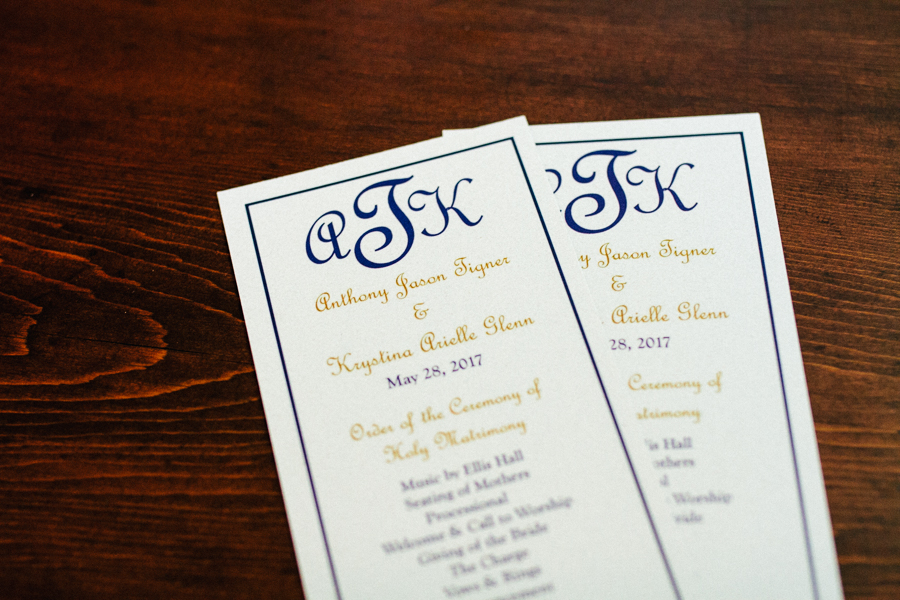 ATK
Anthony Jason Tigner
&
Krystina Arielle Glenn
May 28, 2017
Order of the Ceremony of
Holy Matrimony
Music by Ellis Hall
Seating of Mothers
Processional
Welcome & Call to Worship
Giving of the Bride
The Charge
Vows & Rings
TK
y Jason Tigner
&
Arielle Glenn
28, 2017
Ceremony of
trimony
is Hall
others
d
Worship
ride